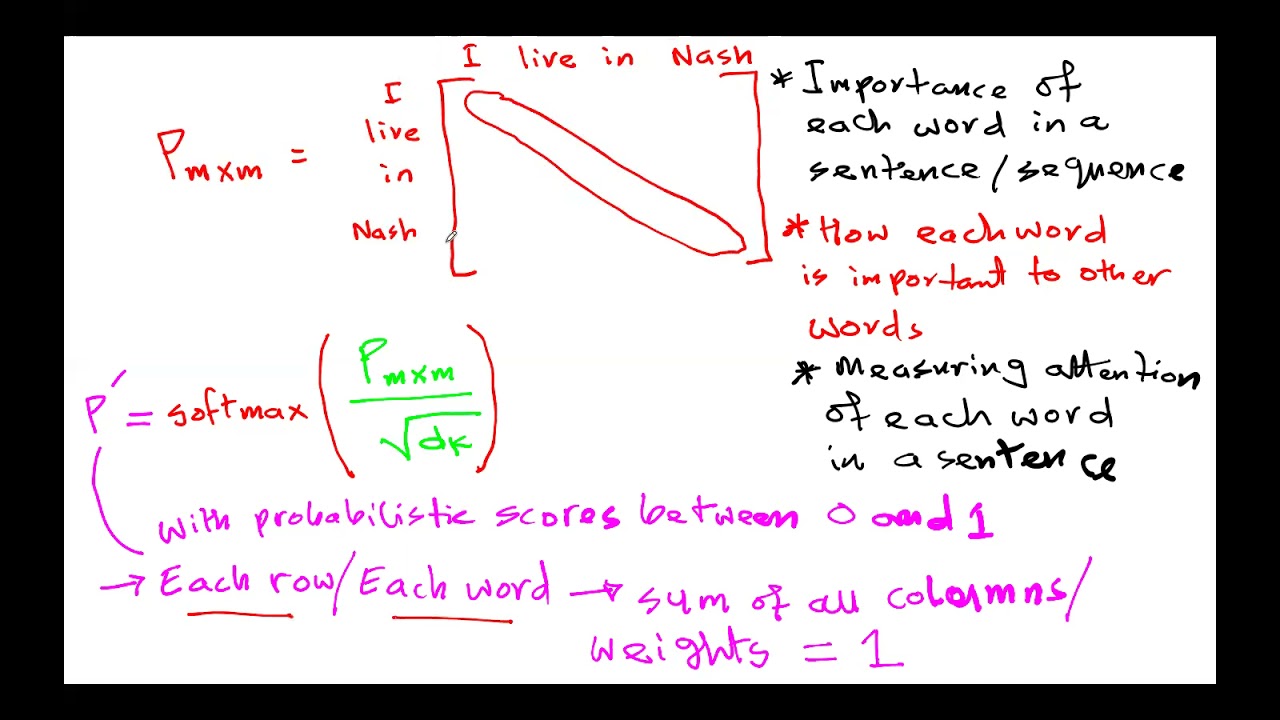 I live in Nash
I
live
P m×m =
in
Nash
* Importance of
each word in a
sentence / sequence
* How each word
is important to other
words
* Measuring attention
of each word
in a sentence
P' = softmax ( P m×m / √dk )
with probabilistic scores between 0 and 1
→ Each row / Each word → sum of all columns /
weights = 1